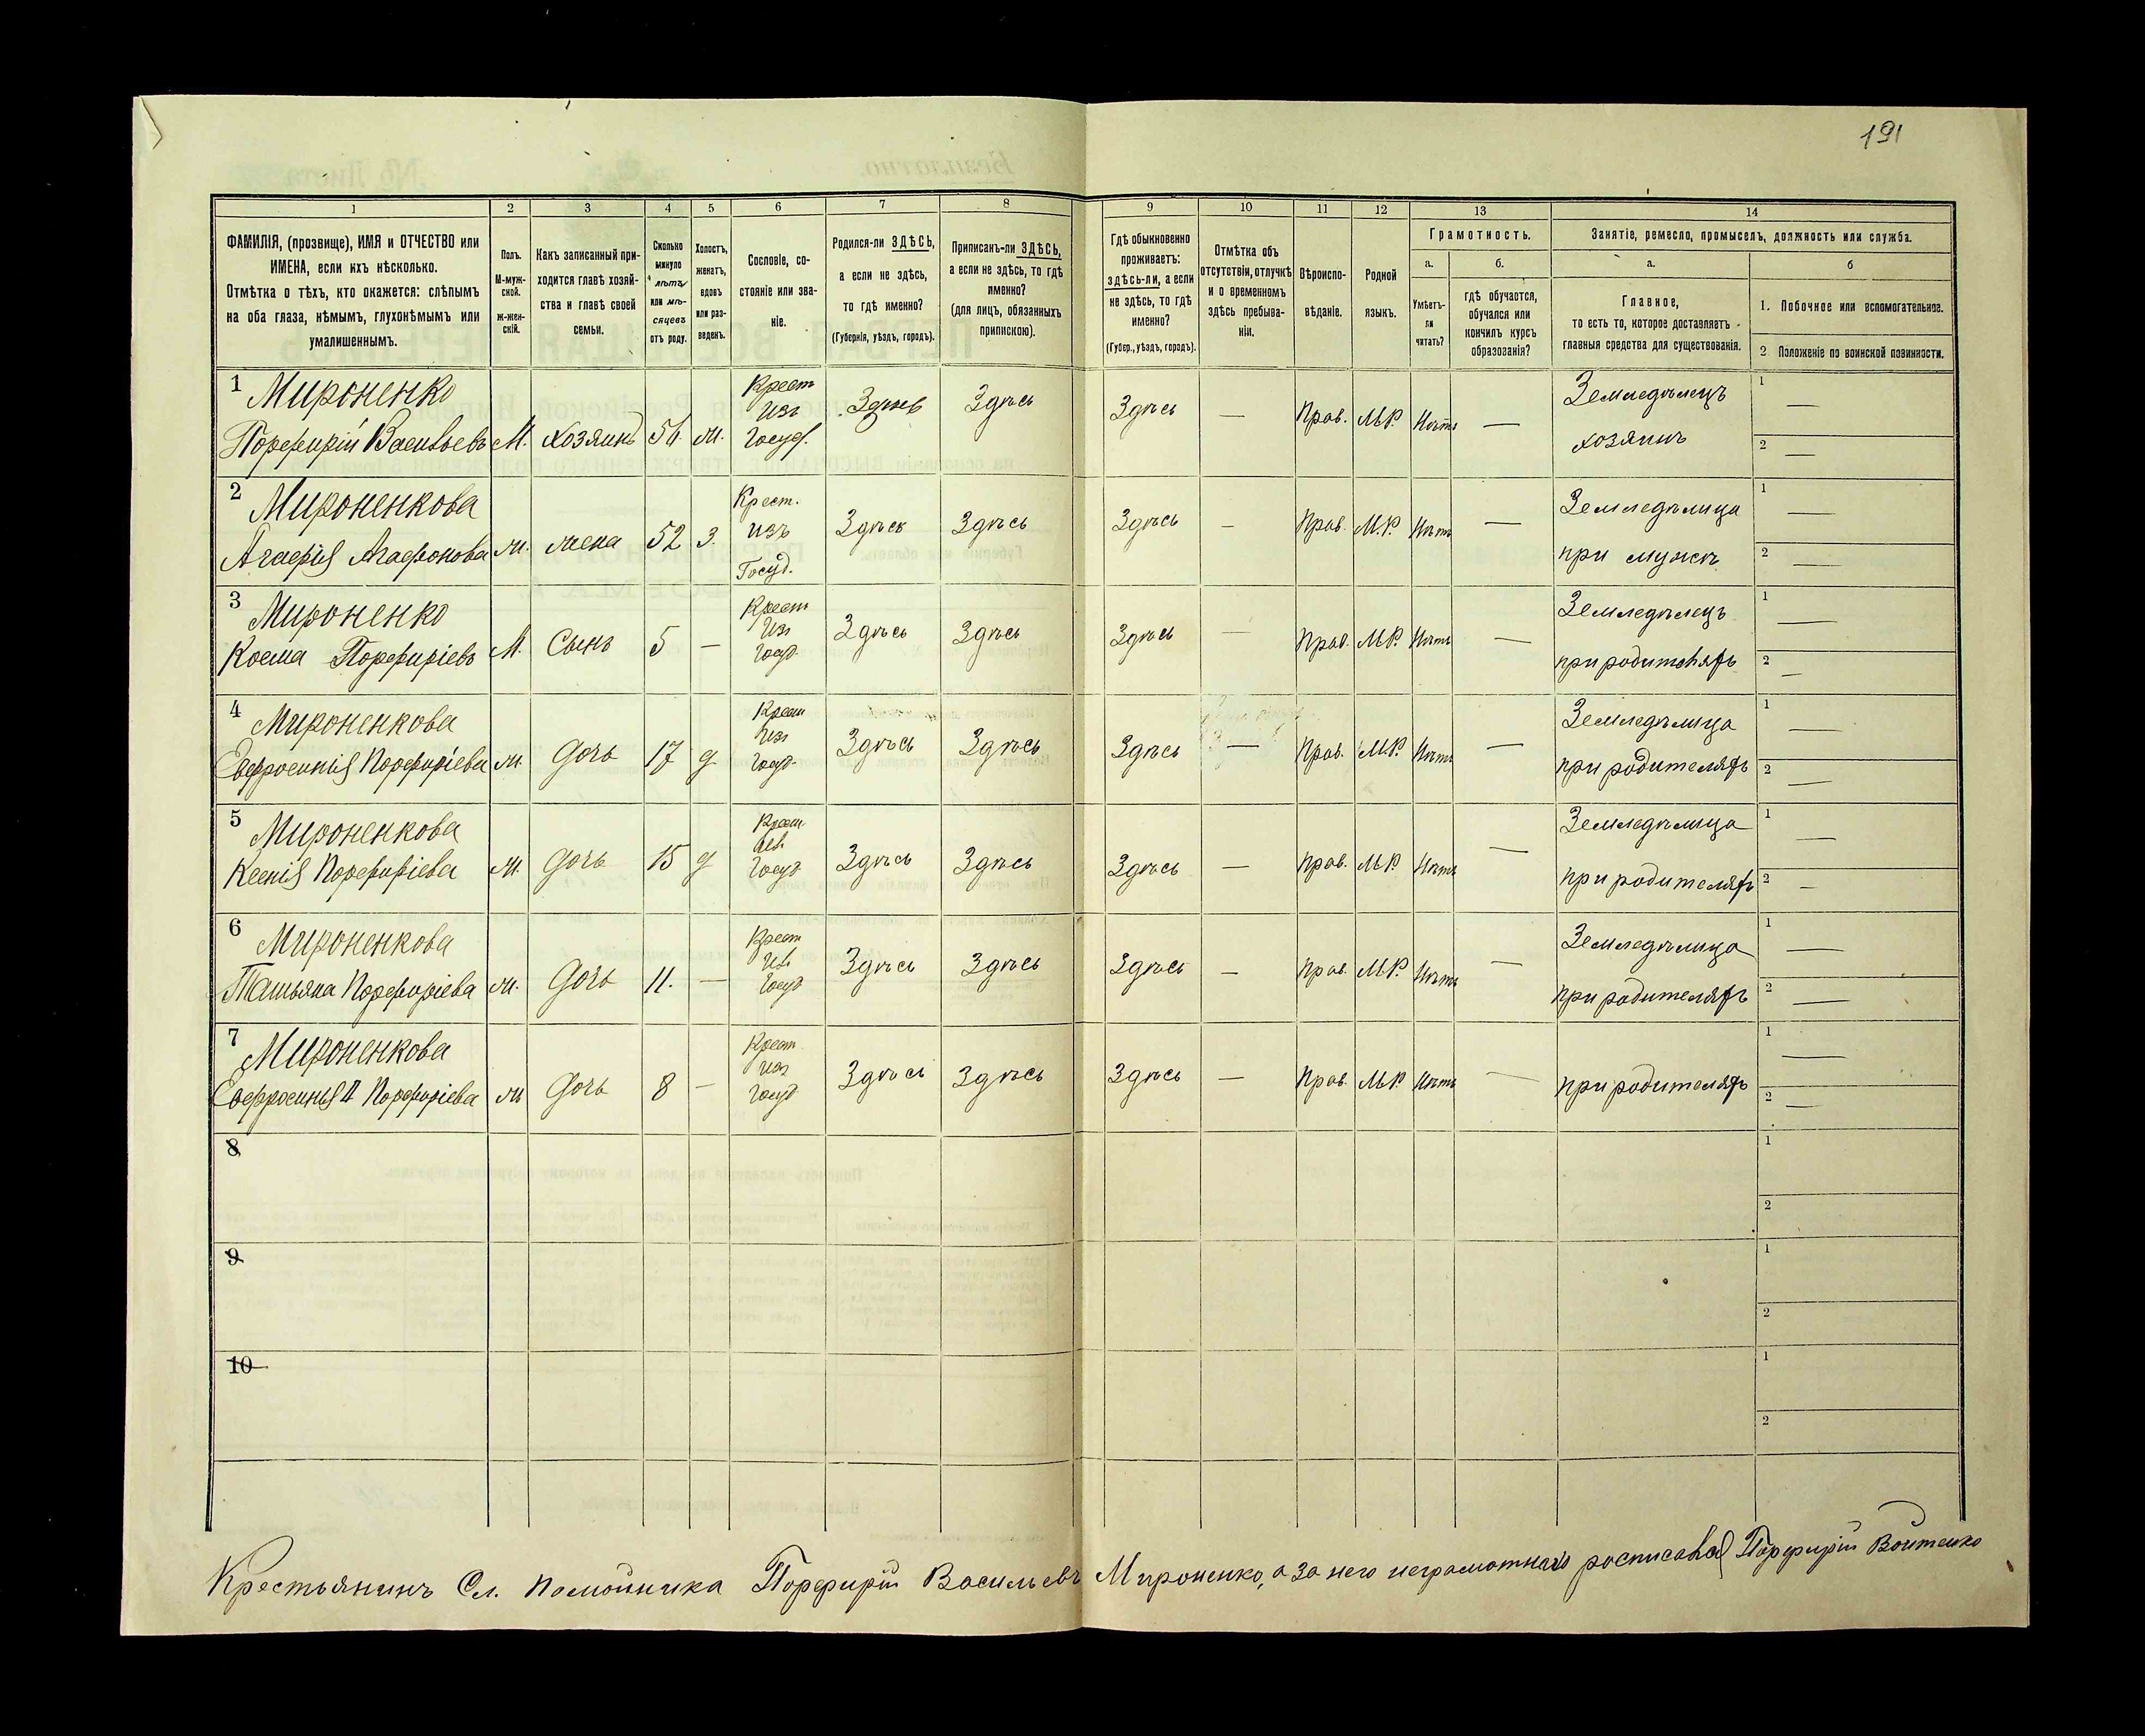 191
1 2 3 4 5 6 7 8 9 10 11 12 13 14
ФАМИЛІЯ, (прозвище), ИМЯ и ОТЧЕСТВО или ИМЕНА, если ихъ нѣсколько.
Отмѣтка о тѣхъ, кто окажется: слѣпымъ на оба глаза, нѣмымъ, глухонѣмымъ или умалишеннымъ.
Полъ. М-мужской. ж-женскій.
Какъ записанный приходится главѣ хозяйства и главѣ своей семьи.
Сколько минуло лѣтъ или мѣсяцевъ отъ роду.
Холостъ, женатъ, вдовъ или разведенъ.
Сословіе, состояніе или званіе.
Родился-ли ЗДѢСЬ, а если не здѣсь, то гдѣ именно? (Губернія, уѣздъ, городъ).
Приписанъ-ли ЗДѢСЬ, а если не здѣсь, то гдѣ именно? (для лицъ, обязанныхъ припискою).
Гдѣ обыкновенно проживаетъ: здѣсь-ли, а если не здѣсь, то гдѣ именно? (Губер., уѣздъ, городъ).
Отмѣтка объ отсутствіи, отлучкѣ и о временномъ здѣсь пребываніи.
Вѣроисповѣданіе.
Родной языкъ.
Грамотность.
а. Умѣетъ-ли читать?
б. гдѣ обучается, обучался или кончилъ курсъ образованія?
Занятіе, ремесло, промыселъ, должность или служба.
а. Главное, то есть то, которое доставляетъ главныя средства для существованія.
б
1. Побочное или вспомогательное.
2 Положеніе по воинской повинности.
1 Мироненко Крест Земледѣлецъ 1 —
Порфирій Васильевъ М. хозяинъ ж. изъ Госуд. Здѣсь Здѣсь Здѣсь — Прав. М.Р. Нѣтъ — хозяинъ 2 —
2 Мироненкова Крест. Земледѣлица 1 —
Агафія Агафонова ж. жена 52 з. изъ Госуд. Здѣсь Здѣсь Здѣсь — Прав. М.Р. Нѣтъ — при мужѣ 2 —
3 Мироненко Крест Земледѣлецъ 1 —
Косма Порфиріевъ М. Сынъ 5 — изъ Госуд. Здѣсь Здѣсь Здѣсь — Прав. М.Р. Нѣтъ — при родителяхъ 2 —
4 Мироненкова Крест Земледѣлица 1 —
Евфросинія Порфиріева ж. дочь 17 д изъ Госуд. Здѣсь Здѣсь Здѣсь — Прав. М.Р. Нѣтъ — при родителяхъ 2 —
5 Мироненкова Крест Земледѣлица 1 —
Ксенія Порфиріева ж. дочь 15 д изъ Госуд. Здѣсь Здѣсь Здѣсь — Прав. М.Р. Нѣтъ — при родителяхъ 2 —
6 Мироненкова Крест Земледѣлица 1 —
Татьяна Порфиріева ж. дочь 11. — изъ Госуд Здѣсь Здѣсь Здѣсь — Прав. М.Р. Нѣтъ — при родителяхъ 2 —
7 Мироненкова Крест 1 —
Евфросинія II Порфиріева ж дочь 8 — изъ Госуд Здѣсь Здѣсь Здѣсь — Прав. М.Р. Нѣтъ — при родителяхъ 2 —
8 1
2
9 1
2
10 1
2
Крестьянинъ Сл. Помойника Порфирій Васильевъ Мироненко, а за него неграмотнаго росписался Порфирій Войтенко